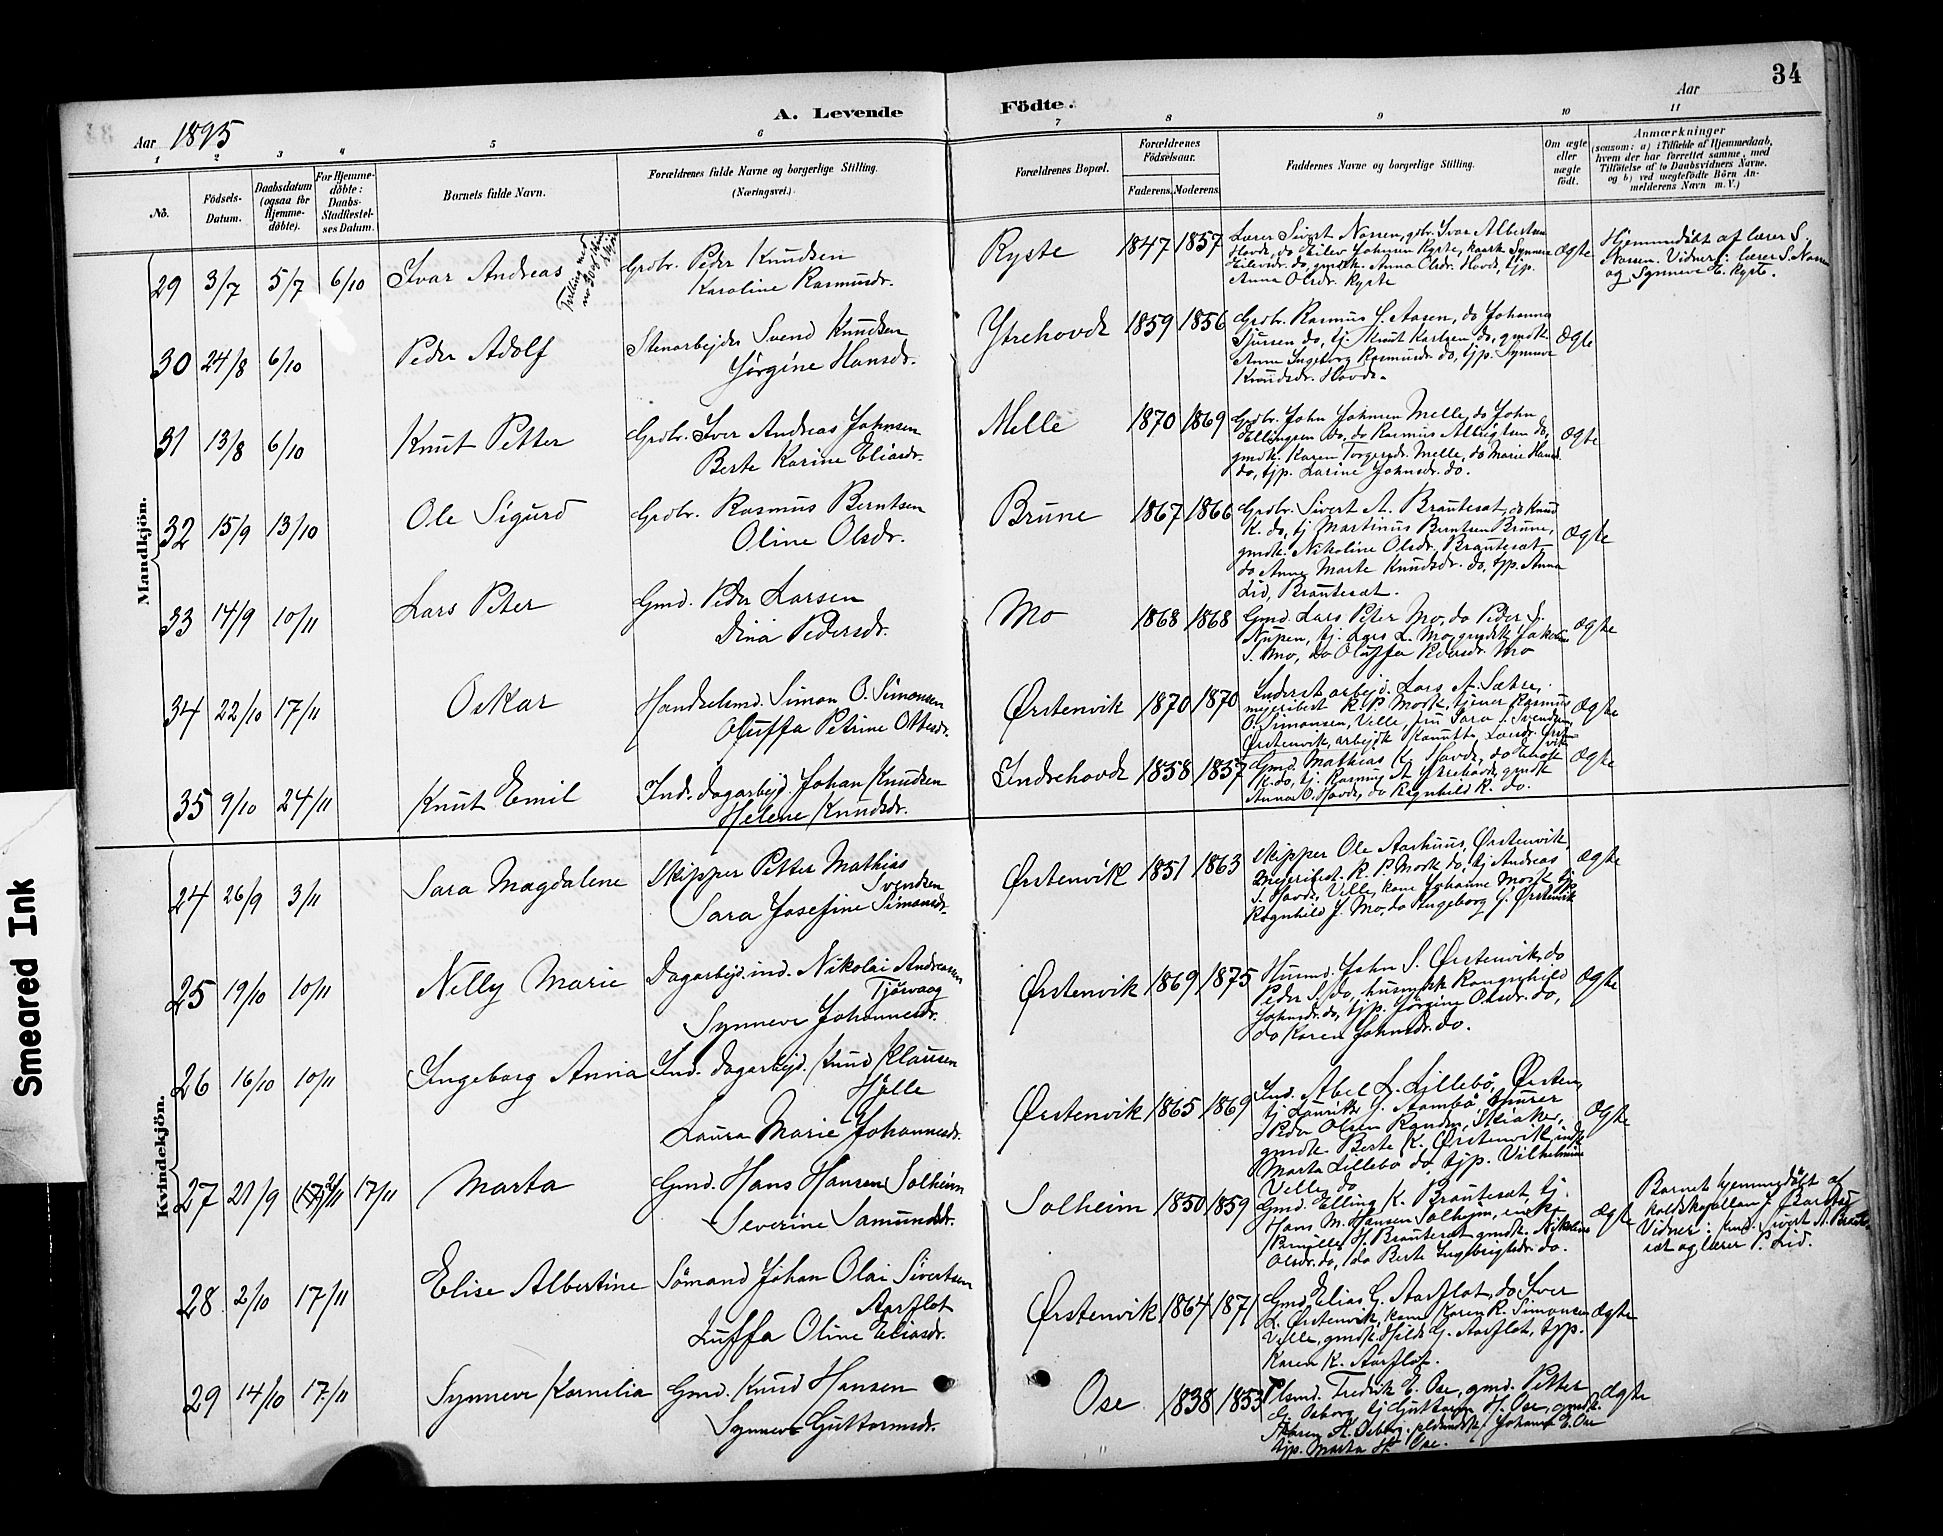 34
A. Levende Födte.
Aar 1895
Aar
1 2 3 4 5 6 7 8 9 10 11
No.
Födsels-Datum.
Daabsdatum (ogsaa for Hjemme-döbte).
For Hjemme-döbte: Daabs-Stadfæstel-ses Datum.
Barnets fulde Navn.
Forældrenes fulde Navne og borgerlige Stilling.
(Næringsvei.)
Forældrenes Bopæl.
Forældrenes Födselsaar.
Faderens. Moderens.
Faddernes Navne og borgerlige Stilling.
Om ægte eller uægte födt.
Anmærkninger
(saasom: a) i Tilfælde af Hjemmedaab, hvem der har forrettet samme, med Tilföielse af to Daabsvidners Navne, og b) ved uægtefödte Börn An-melderens Navn m. V.)
Mandkjön.
29 3/7 5/7 6/10 Ivar Andreas
Grdbr. Peder Knudsen
Karoline Rasmusdr.
Ryste 1847 1857
Lærer Sivert Nossen, gdbr. Ivar Albertsen
Hovde, do Eilev Johnsen Ryste, kaark. Synneve
Eilevsdr. do, gmdk. Anna Olsdr. Hovde, tjp.
Anne Olsdr. Ryste
Ægte
Hjemmedöbt af lærer S.
Nossen. Vidner: lærer S. Nossen
og Synneve E. Ryste.
30 24/8 6/10 Peder Adolf
Stenarbejder Svend Knudsen
Jørgine Hansdr.
Ytrehovde 1859 1856
Grdbr. Rasmus S. Aasen, do Johannes
Sjursen do, tj. Knut Karlsen do, gmdk.
Anne Ingeborg Rasmusdr. do, tjp. Synneve
Knudsdr. Hovde.
Ægte
31 13/8 6/10 Knut Petter
Grdbr. Iver Andreas Johnsen
Berte Karine Eliasdr.
Melle 1870 1869
Grdbr. John Johnsen Melle, do John
Ellingsen do, do Rasmus Albrigtsen do,
gmdk. Karen Torgersdr. Melle, do Marie Hansdr.
do, tjp. Larine Johnsdr. do.
Ægte
32 15/9 13/10 Ole Sigurd
Grdbr. Rasmus Berntsen
Oline Olsdr.
Brune 1867 1866
Grdbr. Sivert A. Brautesæt, do Knud
K. do, tj Martinus Berntsen Brune,
gmdk. Nikoline Olsdr. Brautesæt
do Anne Marte Knudsdr. do, tjp. Anna
Lid, Brautesæt.
Ægte
33 14/9 10/11 Lars Peter
Gmd. Peder Larsen
Dina Pedersdr.
Mo 1868 1868
Gmd. Lars Peter Mo, do Peder S.
Nupen, tj. Lars L. Mo, gmdk Jakobine
S. Mo, do Oluffa Pedersdr. Mo
Ægte
34 22/10 17/11 Oskar
Handelsmd. Simon O. Simonsen
Oluffa Petrine Ottesdr.
Ørstenvik 1870 1870
arbejd. Lars A. Sætre,
mejeribest. R. P. Mork, tjener Rasmus
O. Simonsen, Velle, fru Sara J. Svendsen,
Ørstenvik, arbejdk Knutta Larsdr. Ørsten-
vik
Ægte
35 9/10 24/11 Knut Emil
Ind. dagarbejd. Johan Knudsen
Helene Knudsdr.
Indrehovde 1858 1857
Gmd. Mathias K. Hovde, do Knut
K. do, tj. Rasmus A. Ytrehovde, gmdk
Anna O. Hovde, do Ragnhild K. do.
Ægte
Kvindekjön.
24 26/9 3/11 Sara Magdalene
Skipper Petter Mathias
Svendsen
Sara Josefine Simonsdr.
Ørstenvik 1851 1863
Skipper Ole Aarhuus, Ørstenvik,
Mejeribest. R. P. Mork do, tj Andreas
S. Hovde, Velle, kone Johanne Mork, tjp
Ragnhild J. Mo, do Ingeborg J. Ørstenvik
Ægte
25 19/10 10/11 Nelly Marie
Dagarbejd. ind. Nikolai Andreassen
Tjörvaag
Synneve Johannesdr.
Ørstenvik 1869 1875
Husmd. John S. Ørstenvik, do
Peder S. do, husmdk Rangnhild
Johnsdr. do, tjp. Jørgine Olsdr. do,
do Karen Johnsdr. do.
Ægte
26 16/10 10/11 Ingeborg Anna
Ind. dagarbejd. Knud Klausen
Hjelle
Laura Marie Johannesdr.
Ørstenvik 1865 1869
Ind. Abel L. Lillebö, Ørsten,
tj Laurits J. Aambö, murer
Peder Olsen Randen, Skiaker,
gmdk. Berte K. Ørstenvik, indk
Marta Lillebö do, tjp. Vilhelmine
Velle do
Ægte
27 21/9 (17/11) 2/11 17/11 Marta
Gmd. Hans Hansen Solheim
Severine Samundsdr.
Solheim 1850 1859
Gmd. Elling K. Brautesæt, tj.
Hans M. Hansen Solheim, enke
Brautesæt gmdk. Nikoline
Olsdr. do, do Berte Ingebrigtsdr. do.
Ægte
Barnet hjemmedöbt af
J. Barstad
Vidner: Sivert A. Braute-
sæt og lærer P. Lid.
28 2/10 17/11 Elise Albertine
Sömand Johan Olai Sivertsen
Aarflot
Luffa Oline Eliasdr.
Ørstenvik 1864 1871
Gmd Elias G. Aarflot, do Iver
L. Ørstenvik, kone Karen R. Simonsen
Velle, gmdk. Hilda G. Aarflot, tjp.
Karen K. Aarflot.
Ægte
29 14/10 17/11 Synneve Kornelia
Gmd. Knud Hansen
Synneve Guttormsdr.
Ose 1838 1853
Plsmd. Fredrik E. Ose, gmd. Petter
G. Osborg tj Guttorm H. Ose, gmdk.
Maren A. Osborg, Johanne E. Ose
tjp. Marta H. Ose.
Ægte
Smeared Ink